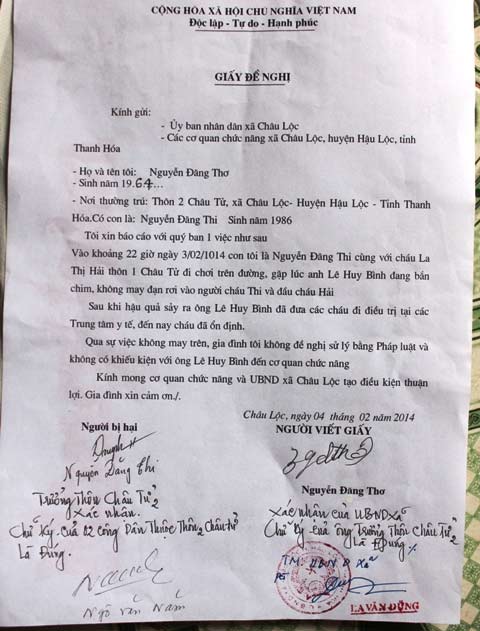 CỘNG HÒA XÃ HỘI CHỦ NGHĨA VIỆT NAM
Độc lập - Tự do - Hạnh phúc
GIẤY ĐỀ NGHỊ
Kính gửi:
- Ủy ban nhân dân xã Châu Lộc
- Các cơ quan chức năng xã Châu Lộc, huyện Hậu Lộc, tỉnh
Thanh Hóa
- Họ và tên tôi: Nguyễn Đăng Thơ
- Sinh năm 19.64...
- Nơi thường trú: Thôn 2 Châu Tử, xã Châu Lộc- Huyện Hậu Lộc - Tỉnh Thanh
Hóa.Có con là: Nguyễn Đăng Thi Sinh năm 1986
Tôi xin báo cáo với quý ban 1 việc như sau
Vào khoảng 22 giờ ngày 3/02/1014 con tôi là Nguyễn Đăng Thi cùng với cháu La
Thị Hải thôn 1 Châu Tử đi chơi trên đường, gặp lúc anh Lê Huy Bình đang bắn
chim, không may đạn rơi vào người cháu Thi và đầu cháu Hải
Sau khi hậu quả sảy ra ông Lê Huy Bình đã đưa các cháu đi điều trị tại các
Trung tâm y tế, đến nay cháu đã ổn định.
Qua sự việc không may trên, gia đình tôi không đề nghị sử lý bằng Pháp luật và
không có khiếu kiện với ông Lê Huy Bình đến cơ quan chức năng
Kính mong cơ quan chức năng và UBND xã Châu Lộc tạo điều kiện thuận
lợi. Gia đình xin cảm ơn./.
Châu Lộc, ngày 04 tháng 02 năm 2014
Người bị hại
NGƯỜI VIẾT GIẤY
Nguyễn Đăng Thi
Nguyễn Đăng Thơ
Trưởng Thôn Châu Tử 2
xác nhân.
Chữ Ký của 02 công Dân Thuộc Thôn 2 Châu Tử
Là Đúng.
Ngô Văn Nam
xác nhân của UBND xã
Chữ Ký của ông Trưởng Thôn Châu Tử 2
Là Đúng
TM. UBND xã
LA VĂN DŨNG